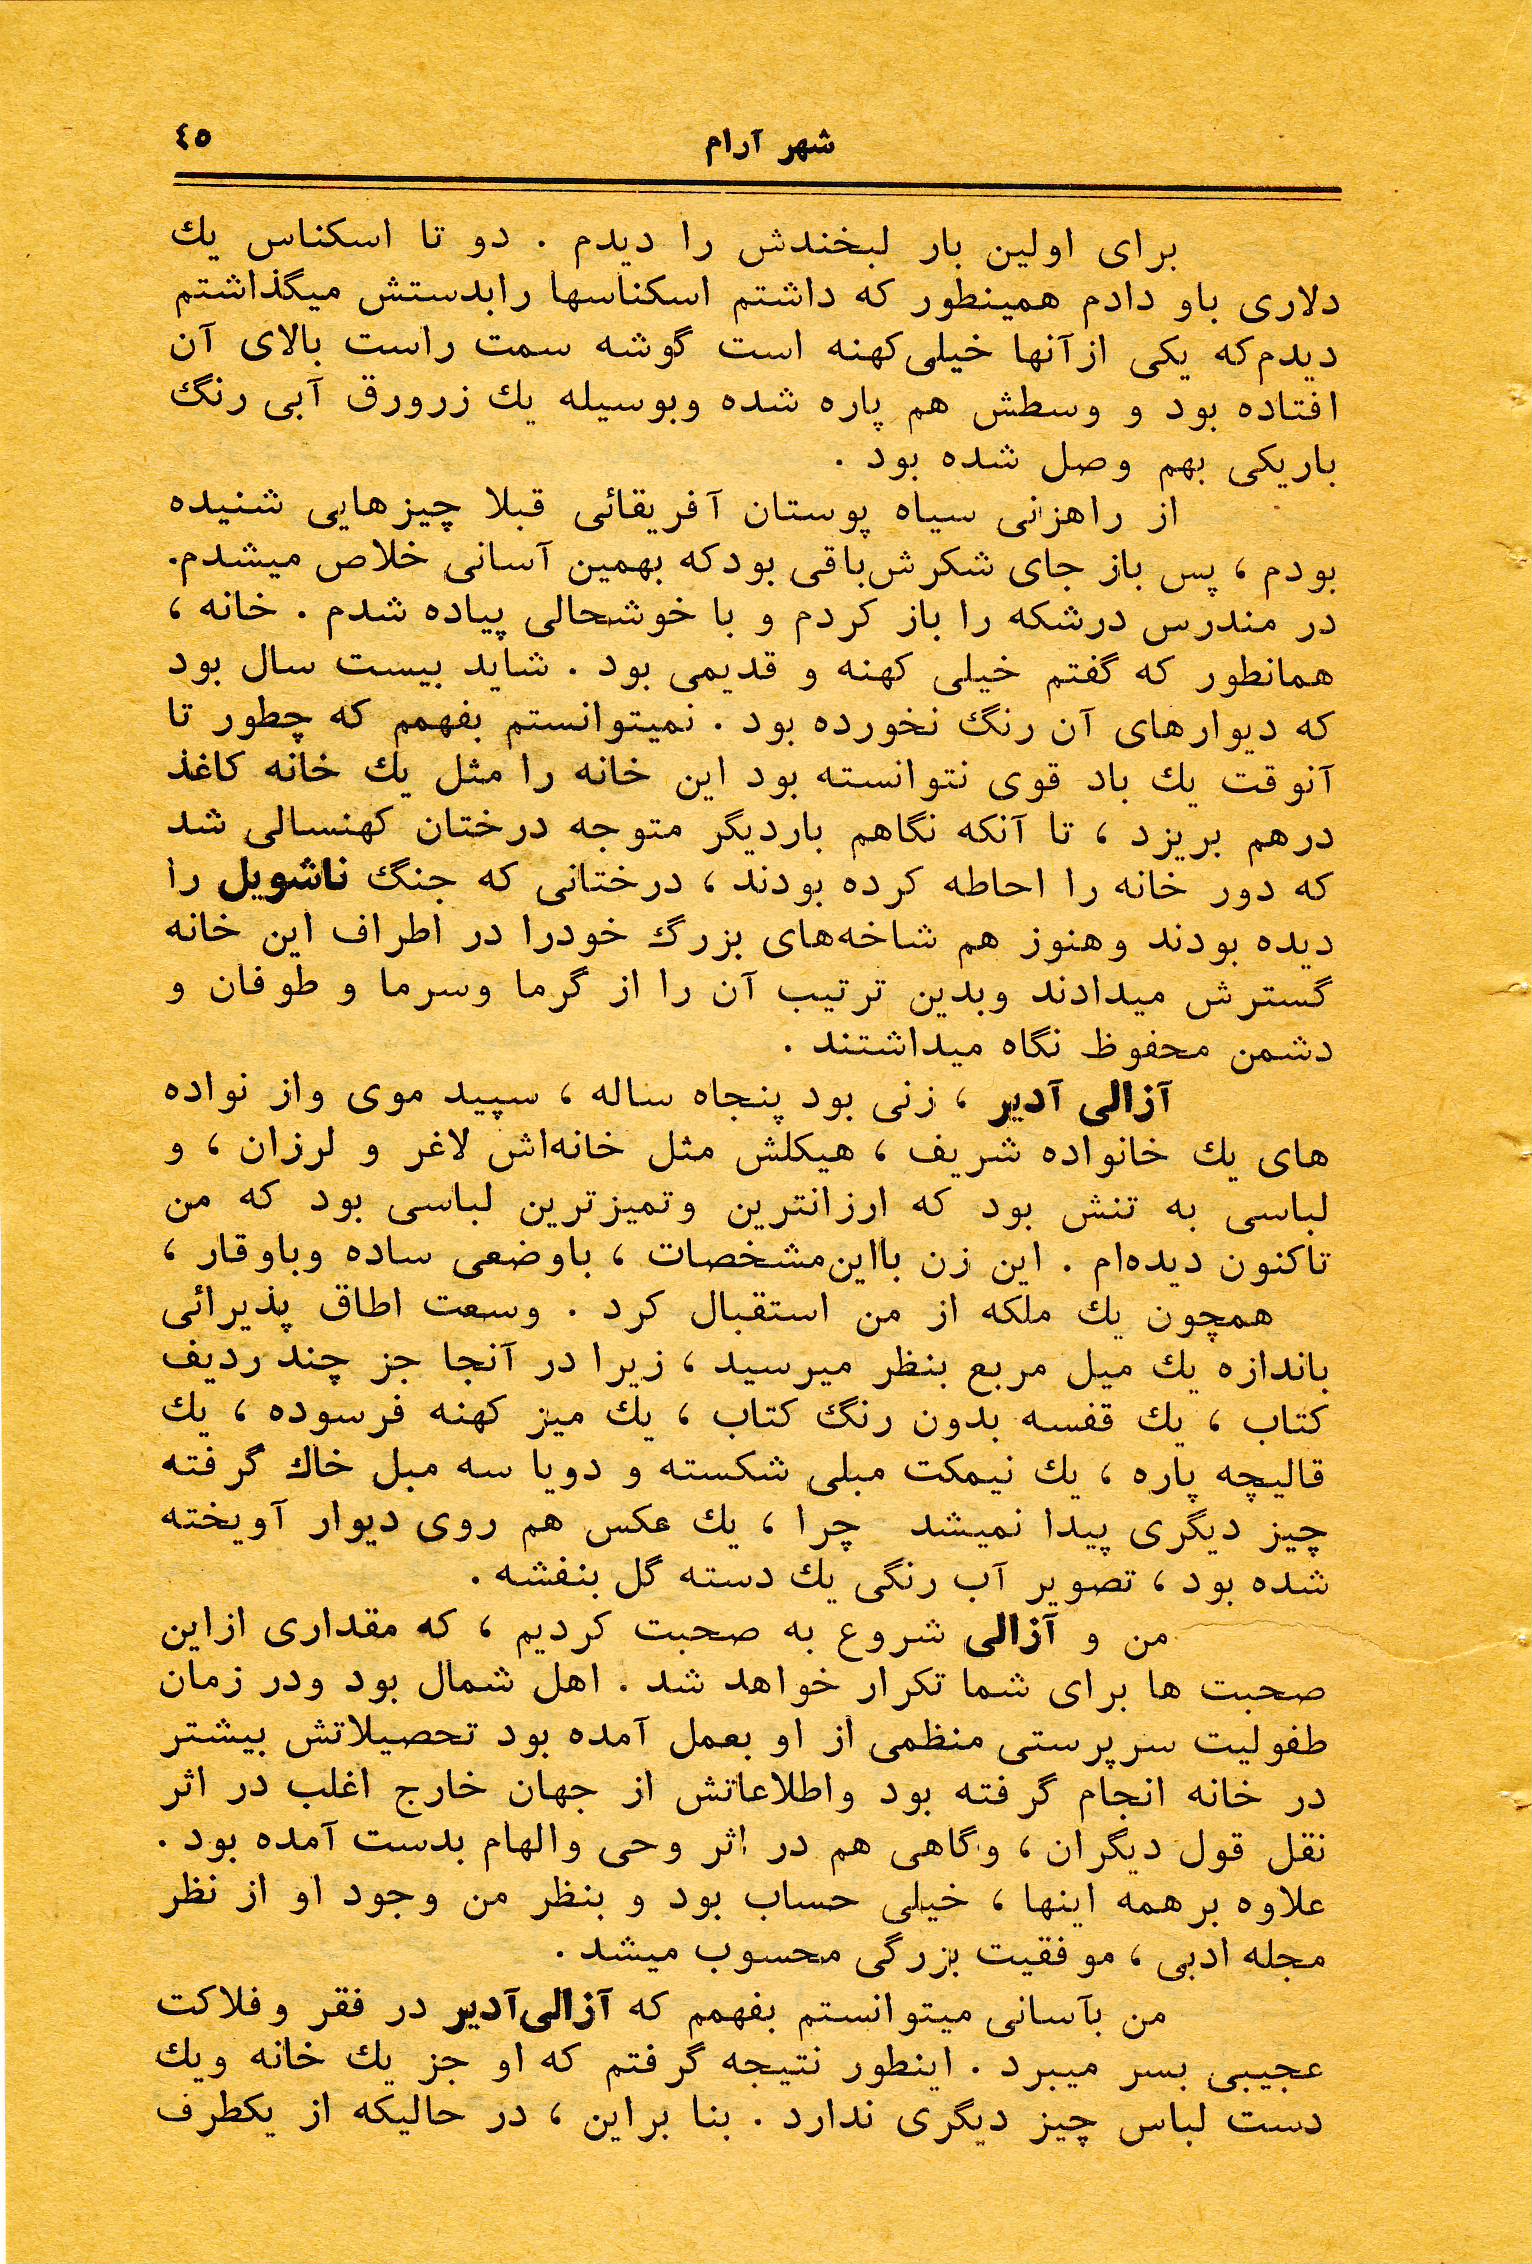 شهر آرام
٤٥
برای اولین بار لبخندش را دیدم . دو تا اسکناس یك
دلاری باو دادم همینطور که داشتم اسکناسها رابدستش میگذاشتم
دیدم‌که یکی ازآنها خیلی‌کهنه است گوشه سمت راست بالای آن
افتاده بود و وسطش هم پاره شده وبوسیله یك زرورق آبی رنگ
باریکی بهم وصل شده بود .
از راهزنی سیاه پوستان آفریقائی قبلا چیزهایی شنیده
بودم ، پس باز جای شکرش‌باقی بودکه بهمین آسانی خلاص میشدم.
در مندرس درشکه را باز کردم و با خوشحالی پیاده شدم . خانه ،
همانطور که گفتم خیلی کهنه و قدیمی بود . شاید بیست سال بود
که دیوارهای آن رنگ نخورده بود . نمیتوانستم بفهمم که چطور تا
آنوقت یك باد قوی نتوانسته بود این خانه را مثل یك خانه کاغذ
درهم بریزد ، تا آنکه نگاهم باردیگر متوجه درختان کهنسالی شد
که دور خانه را احاطه کرده بودند ، درختانی که جنگ ناشویل را
دیده بودند وهنوز هم شاخه‌های بزرگ خودرا در اطراف این خانه
گسترش میدادند وبدین ترتیب آن را از گرما وسرما و طوفان و
دشمن محفوظ نگاه میداشتند .
آزالی آدیر ، زنی بود پنجاه ساله ، سپید موی واز نواده
های یك خانواده شریف ، هیکلش مثل خانه‌اش لاغر و لرزان ، و
لباسی به تنش بود که ارزانترین وتمیزترین لباسی بود که من
تاکنون دیده‌ام . این زن بااین‌مشخصات ، باوضعی ساده وباوقار ،
همچون یك ملکه از من استقبال کرد . وسعت اطاق پذیرائی
باندازه یك میل مربع بنظر میرسید ، زیرا در آنجا جز چند ردیف
کتاب ، یك قفسه بدون رنگ کتاب ، یك میز کهنه فرسوده ، یك
قالیچه پاره ، یك نیمکت مبلی شکسته و دویا سه مبل خاك گرفته
چیز دیگری پیدا نمیشد چرا ، یك عکس هم روی دیوار آویخته
شده بود ، تصویر آب رنگی یك دسته گل بنفشه .
من و آزالی شروع به صحبت کردیم ، که مقداری ازاین
صحبت ها برای شما تکرار خواهد شد . اهل شمال بود ودر زمان
طفولیت سرپرستی منظمی از او بعمل آمده بود تحصیلاتش بیشتر
در خانه انجام گرفته بود واطلاعاتش از جهان خارج اغلب در اثر
نقل قول دیگران ، وگاهی هم در اثر وحی والهام بدست آمده بود .
علاوه برهمه اینها ، خیلی حساب بود و بنظر من وجود او از نظر
مجله ادبی ، موفقیت بزرگی محسوب میشد .
من بآسانی میتوانستم بفهمم که آزالی‌آدیر در فقر وفلاکت
عجیبی بسر میبرد . اینطور نتیجه گرفتم که او جز یك خانه ویك
دست لباس چیز دیگری ندارد . بنا براین ، در حالیکه از یکطرف